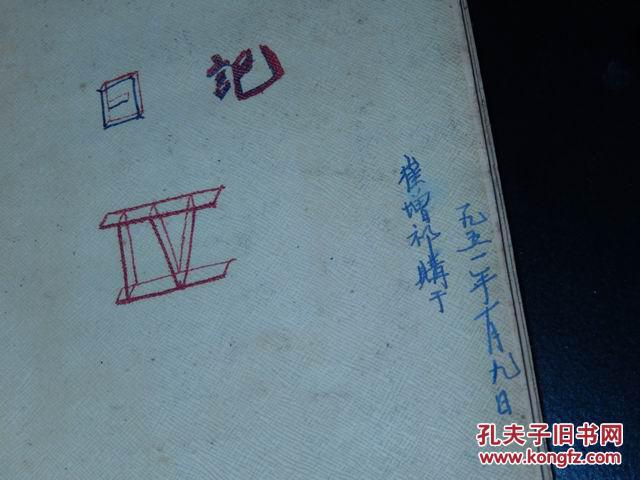 日記
IV
崔增祁購于
九五一年十月九日
孔夫子旧书网
www.kongfz.com